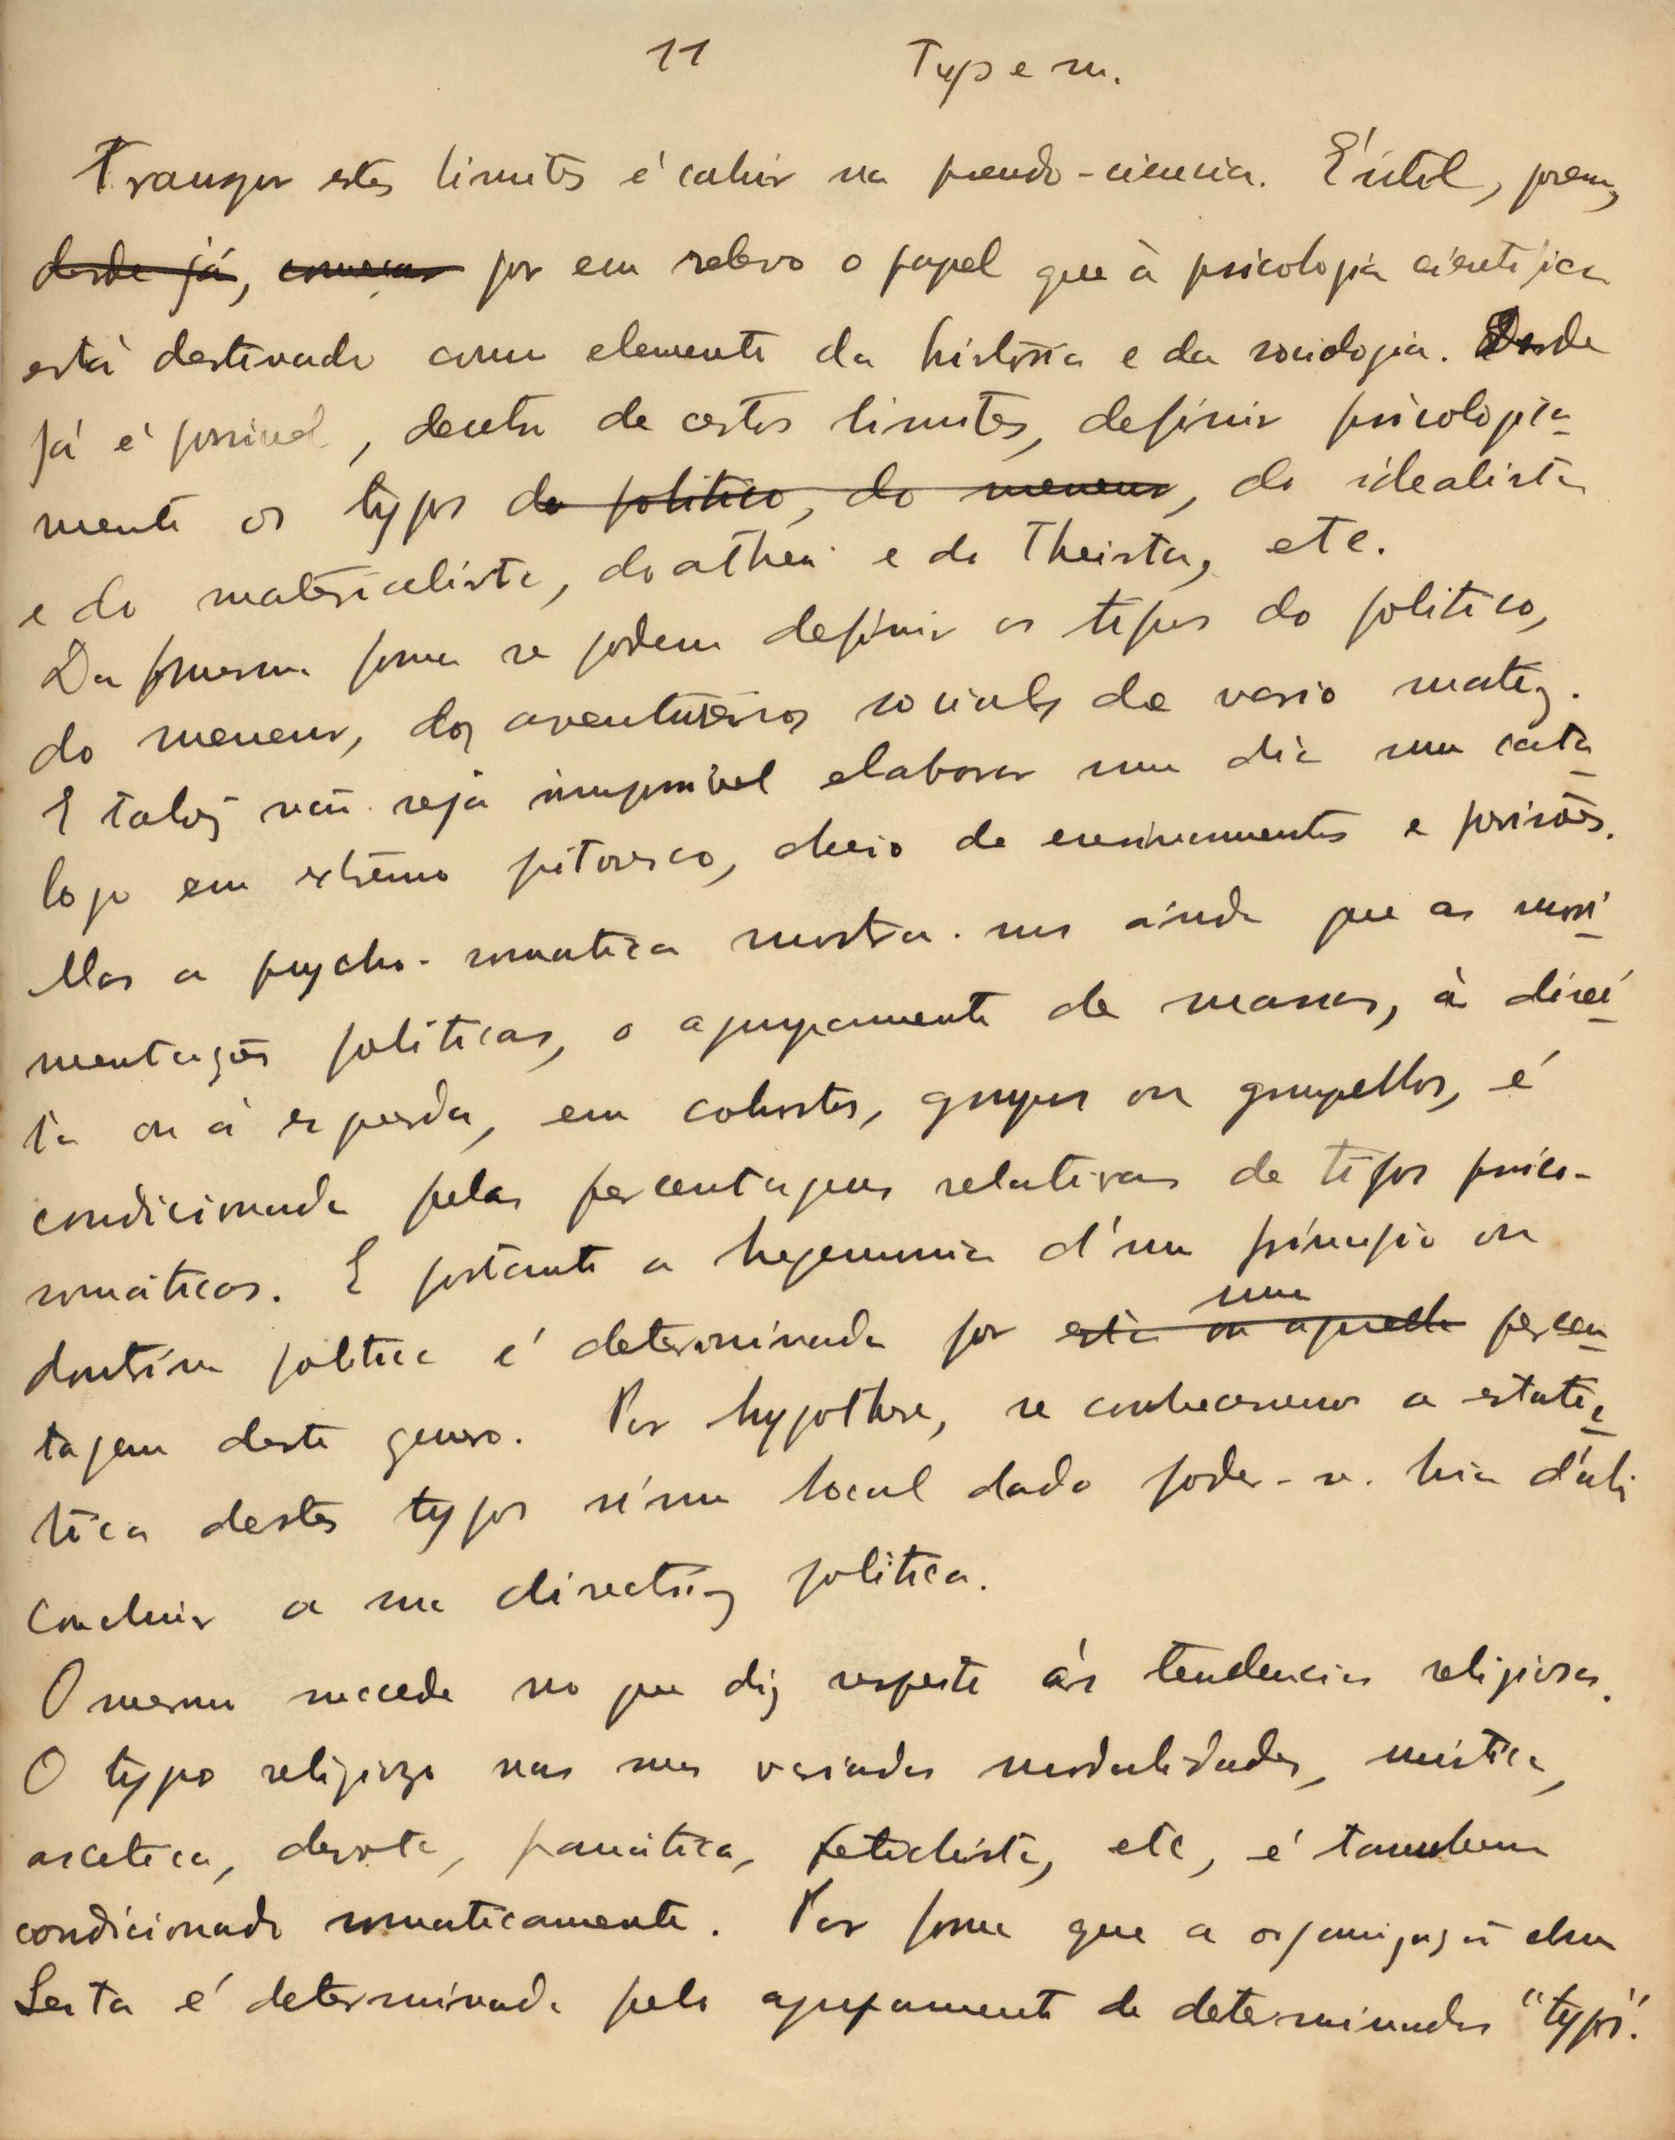 11 Typem.
Franger estes limites é cahir na pseudo-ciencia. É útil, porem,
desde já, começar por em relevo o papel que à psicologia cientifica
está destinado como elemento da história e da sociologia. Desde
já é possivel, dentro de certos limites, definir psicologica-
mente os typos do politico, do meneur, do idealista
e do materialista, do atheu e do Theista, etc.
Da mesma forma se podem definir os tipos do politico,
do meneur, dos aventureiros sociais de vario matiz.
E talvez não seja impossivel elaborar um dia um cata-
logo em extremo pitoresco, cheio de ensinamentos e previsões.
Mas a psycho-somatica mostra-nos ainda que as movi-
mentações politicas, o agrupamento de massas, à direi-
ta ou à esquerda, em cohortes, grupos ou grupelhos, é
condicionada pelas percentagens relativas de tipos psico-
somáticos. E portanto a hegemonia d'um principio ou
doutrina politica é determinada por esta ou aquella percen-
uma
tagem deste genero. Por hypothese, se conhecermos a estatis-
tica destes typos n'um local dado poder-se-hia d'ali
concluir a sua directriz politica.
O mesmo succede no que diz respeito às tendencias religiosas.
O typo religioso nas suas variadas modalidades, mistica,
ascetica, devota, fanática, fetichista, etc, é tambem
condicionado somaticamente. Por forma que a organização duma
Seita é determinada pelo agrupamento de determinados "typos".